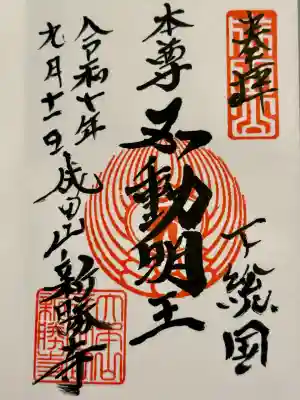 奉拝
下総国
本尊
不動明王
令和七年
九月十一日
成田山
新勝寺